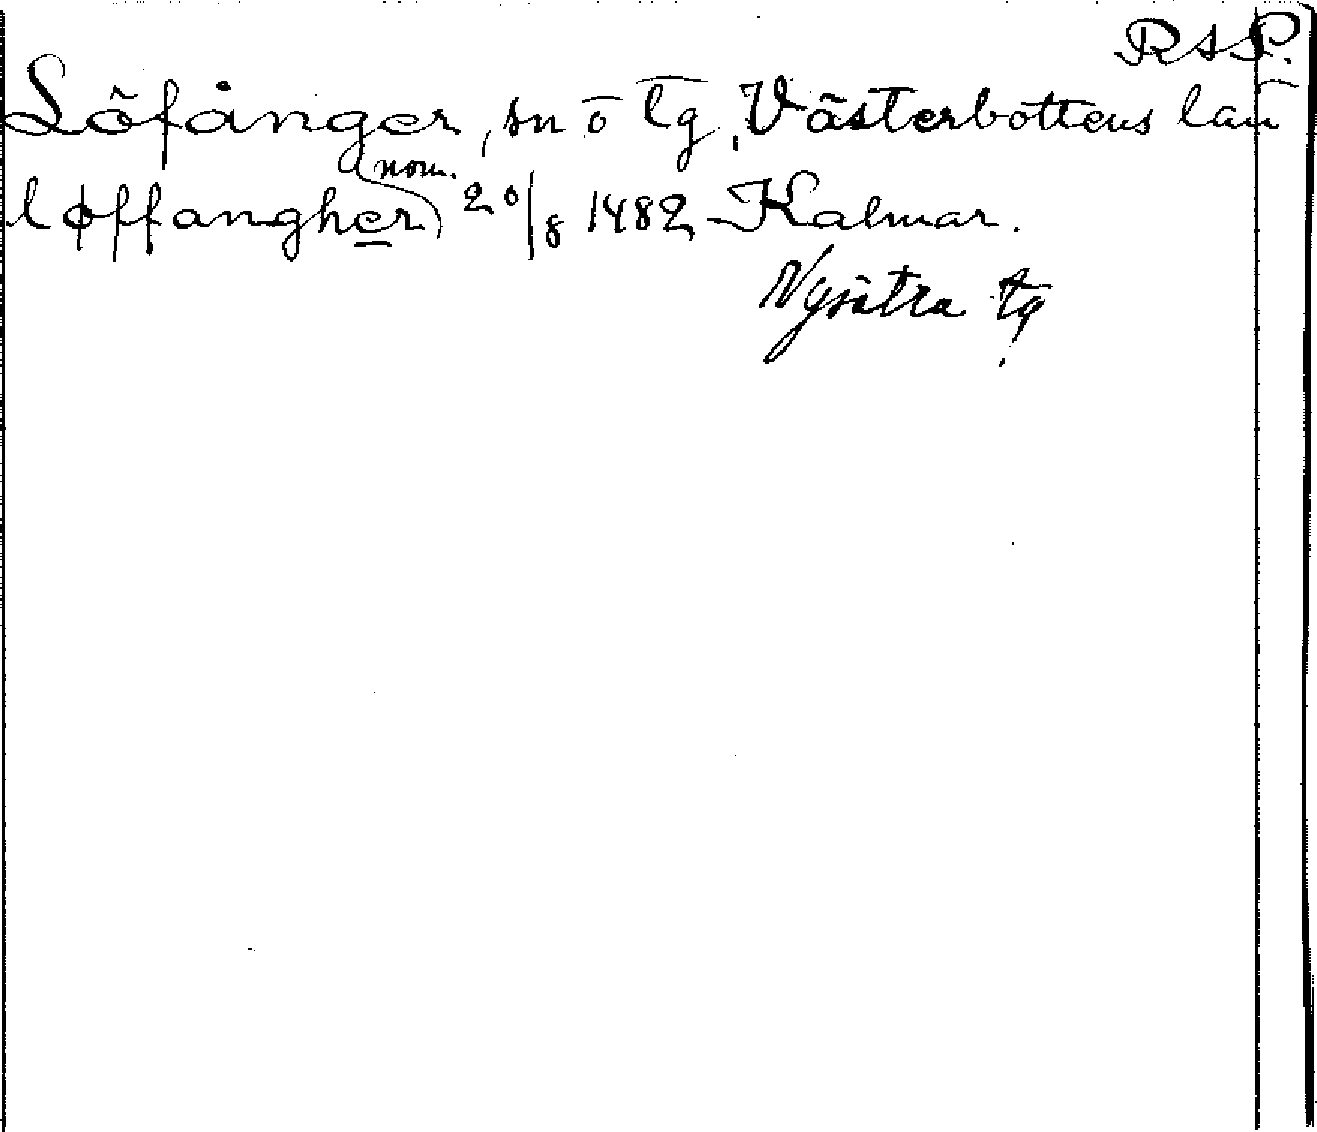 RAP.
Löfånger, sn o tg, Västerbottens län
nom.
løffangher 20/8 1482 Kalmar.
Nysätra tg